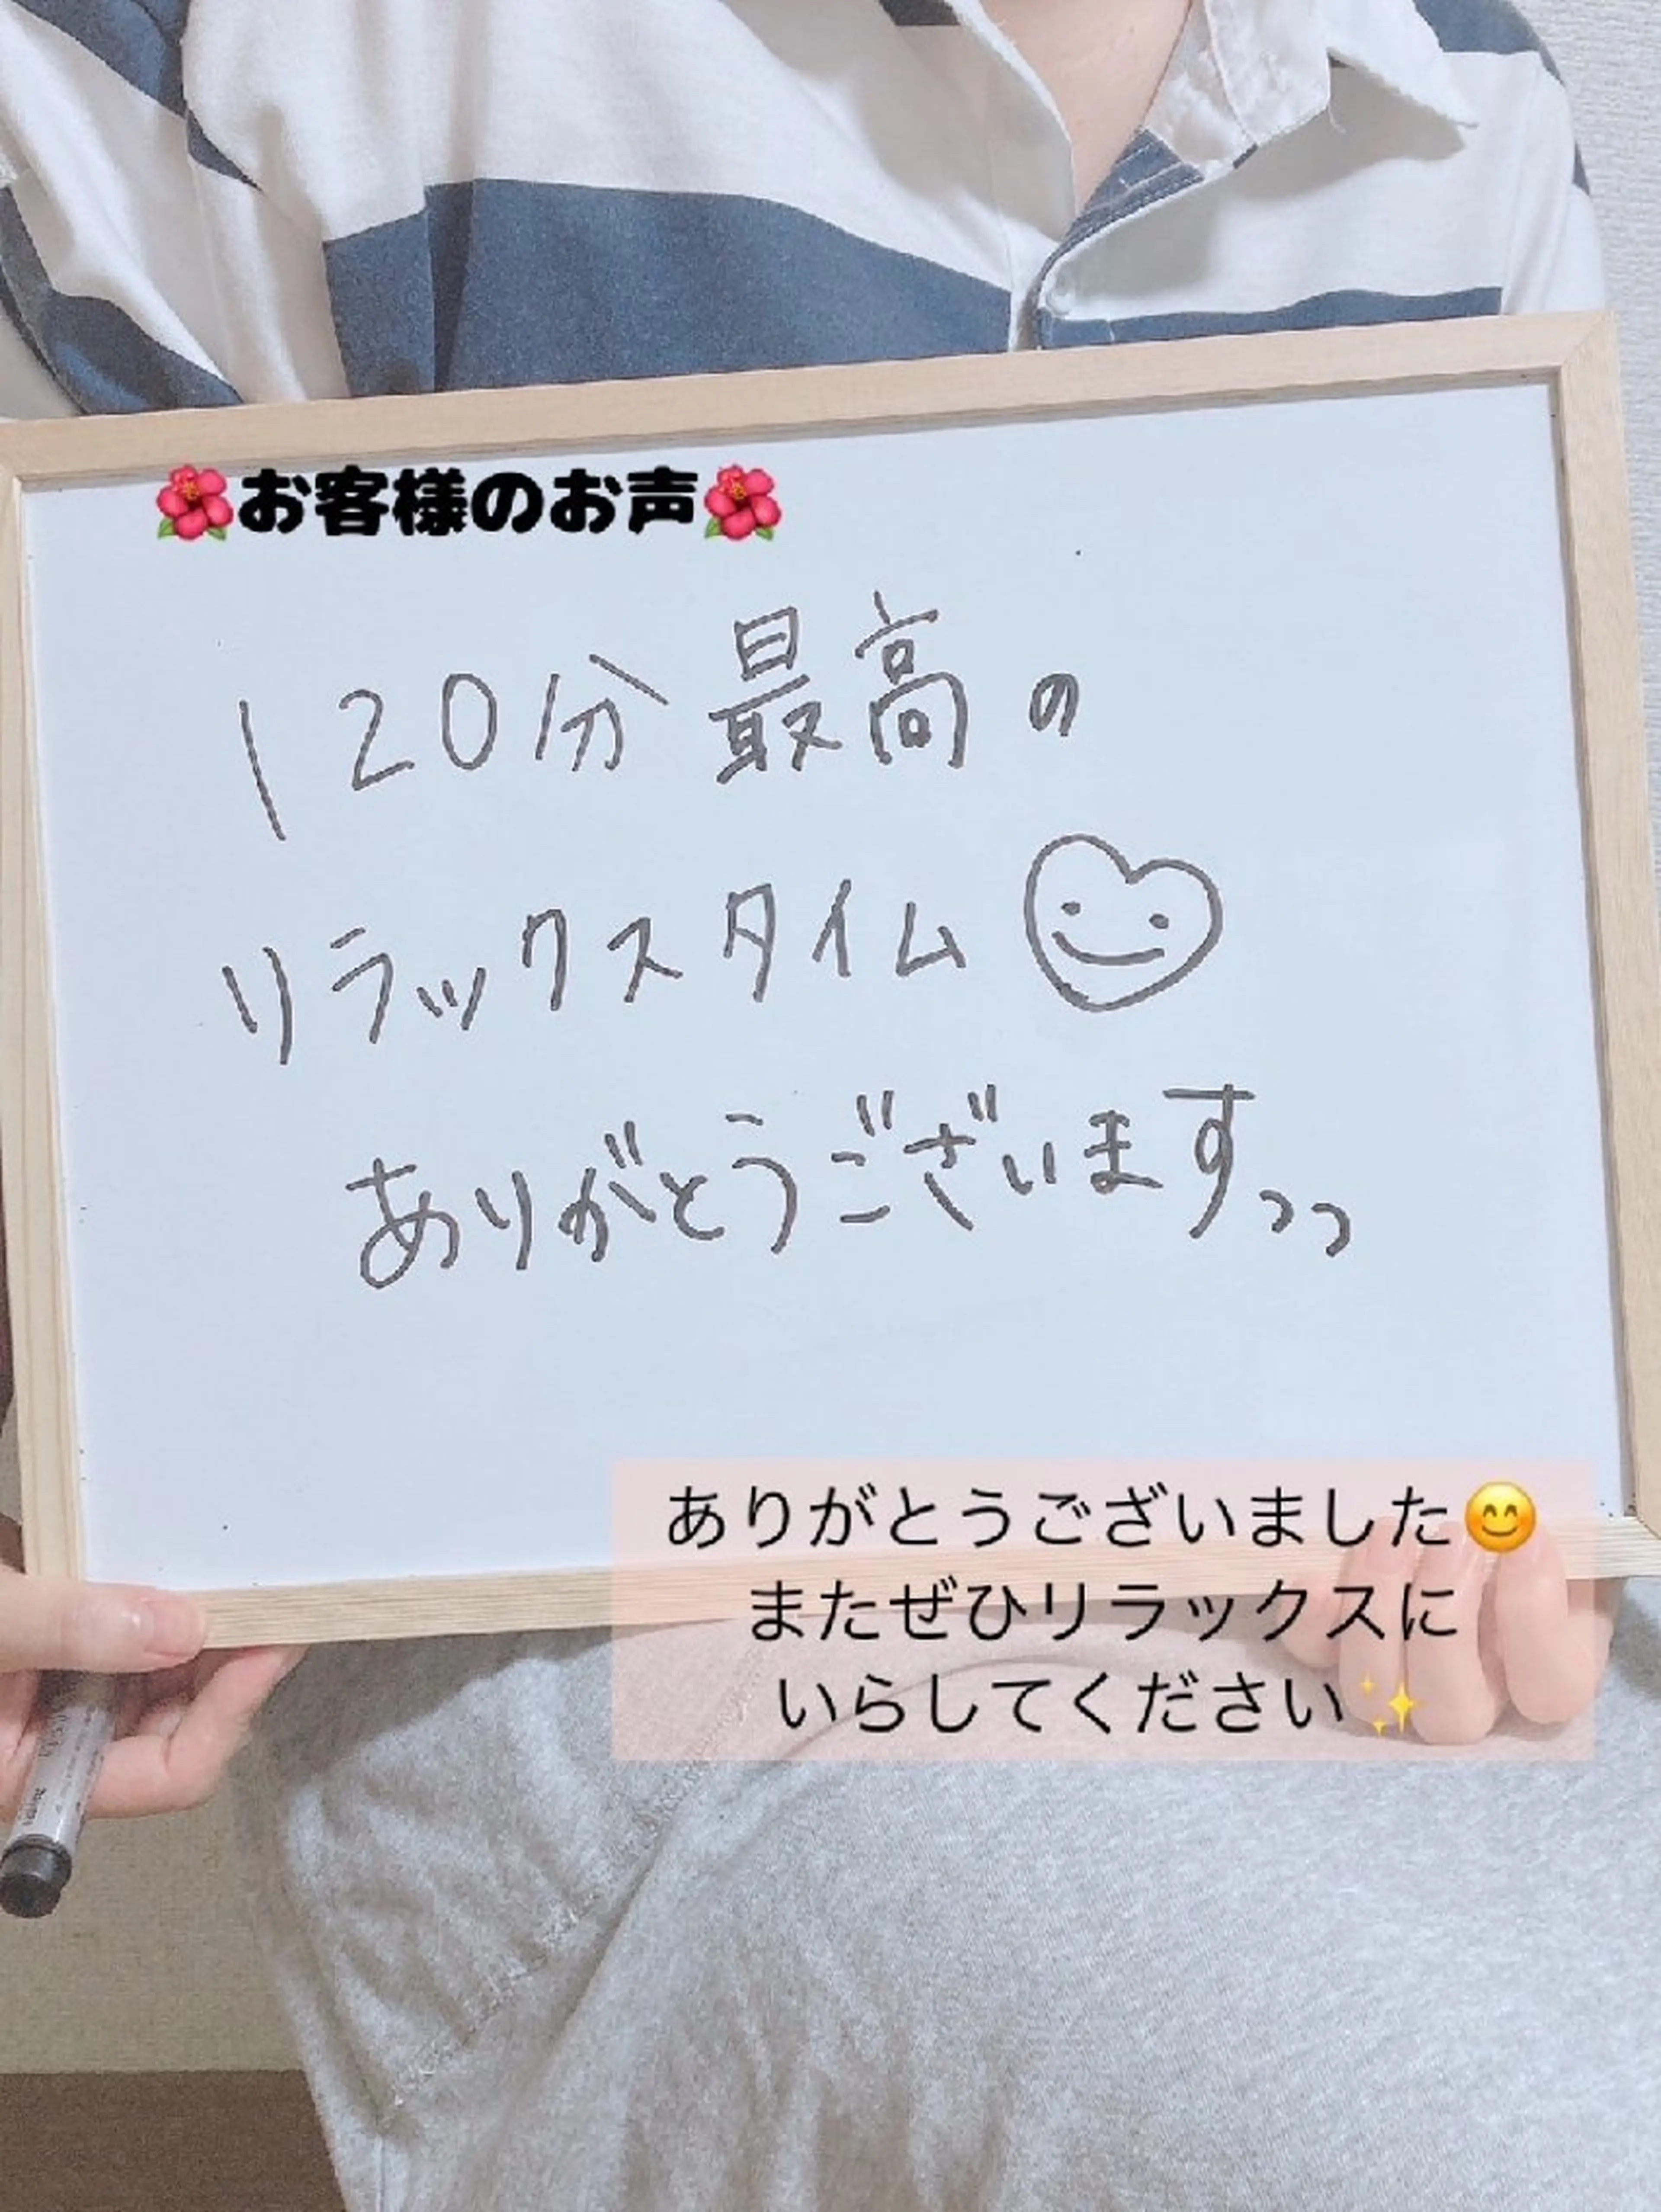 🌺お客様のお声🌺
120分最高の
リラックスタイム
ありがとうございますっっ
ありがとうございました😊
またぜひリラックスに
いらしてください✨